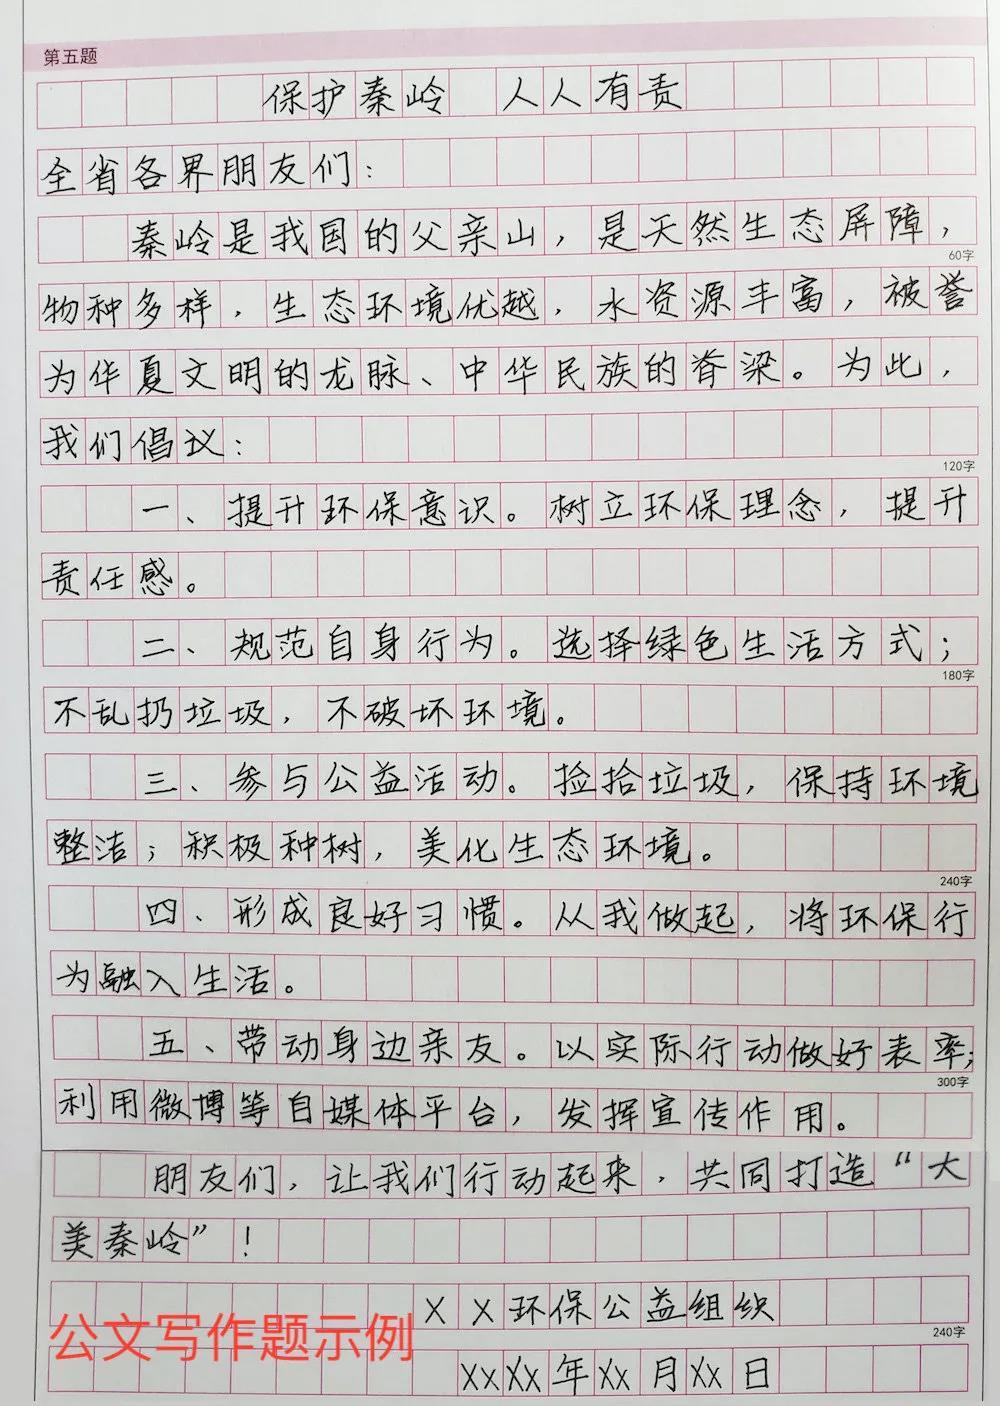 第五题
保护秦岭 人人有责
全省各界朋友们：
秦岭是我国的父亲山，是天然生态屏障，
60字
物种多样，生态环境优越，水资源丰富，被誉
为华夏文明的龙脉、中华民族的脊梁。为此，
我们倡议：
120字
一、提升环保意识。树立环保理念，提升
责任感。
二、规范自身行为。选择绿色生活方式；
180字
不乱扔垃圾，不破坏环境。
三、参与公益活动。捡拾垃圾，保持环境
整洁；积极种树，美化生态环境。
240字
四、形成良好习惯。从我做起，将环保行
为融入生活。
五、带动身边亲友。以实际行动做好表率；
300字
利用微博等自媒体平台，发挥宣传作用。
朋友们，让我们行动起来，共同打造“大
美秦岭”！
XX环保公益组织
240字
XXXX年XX月XX日
公文写作题示例